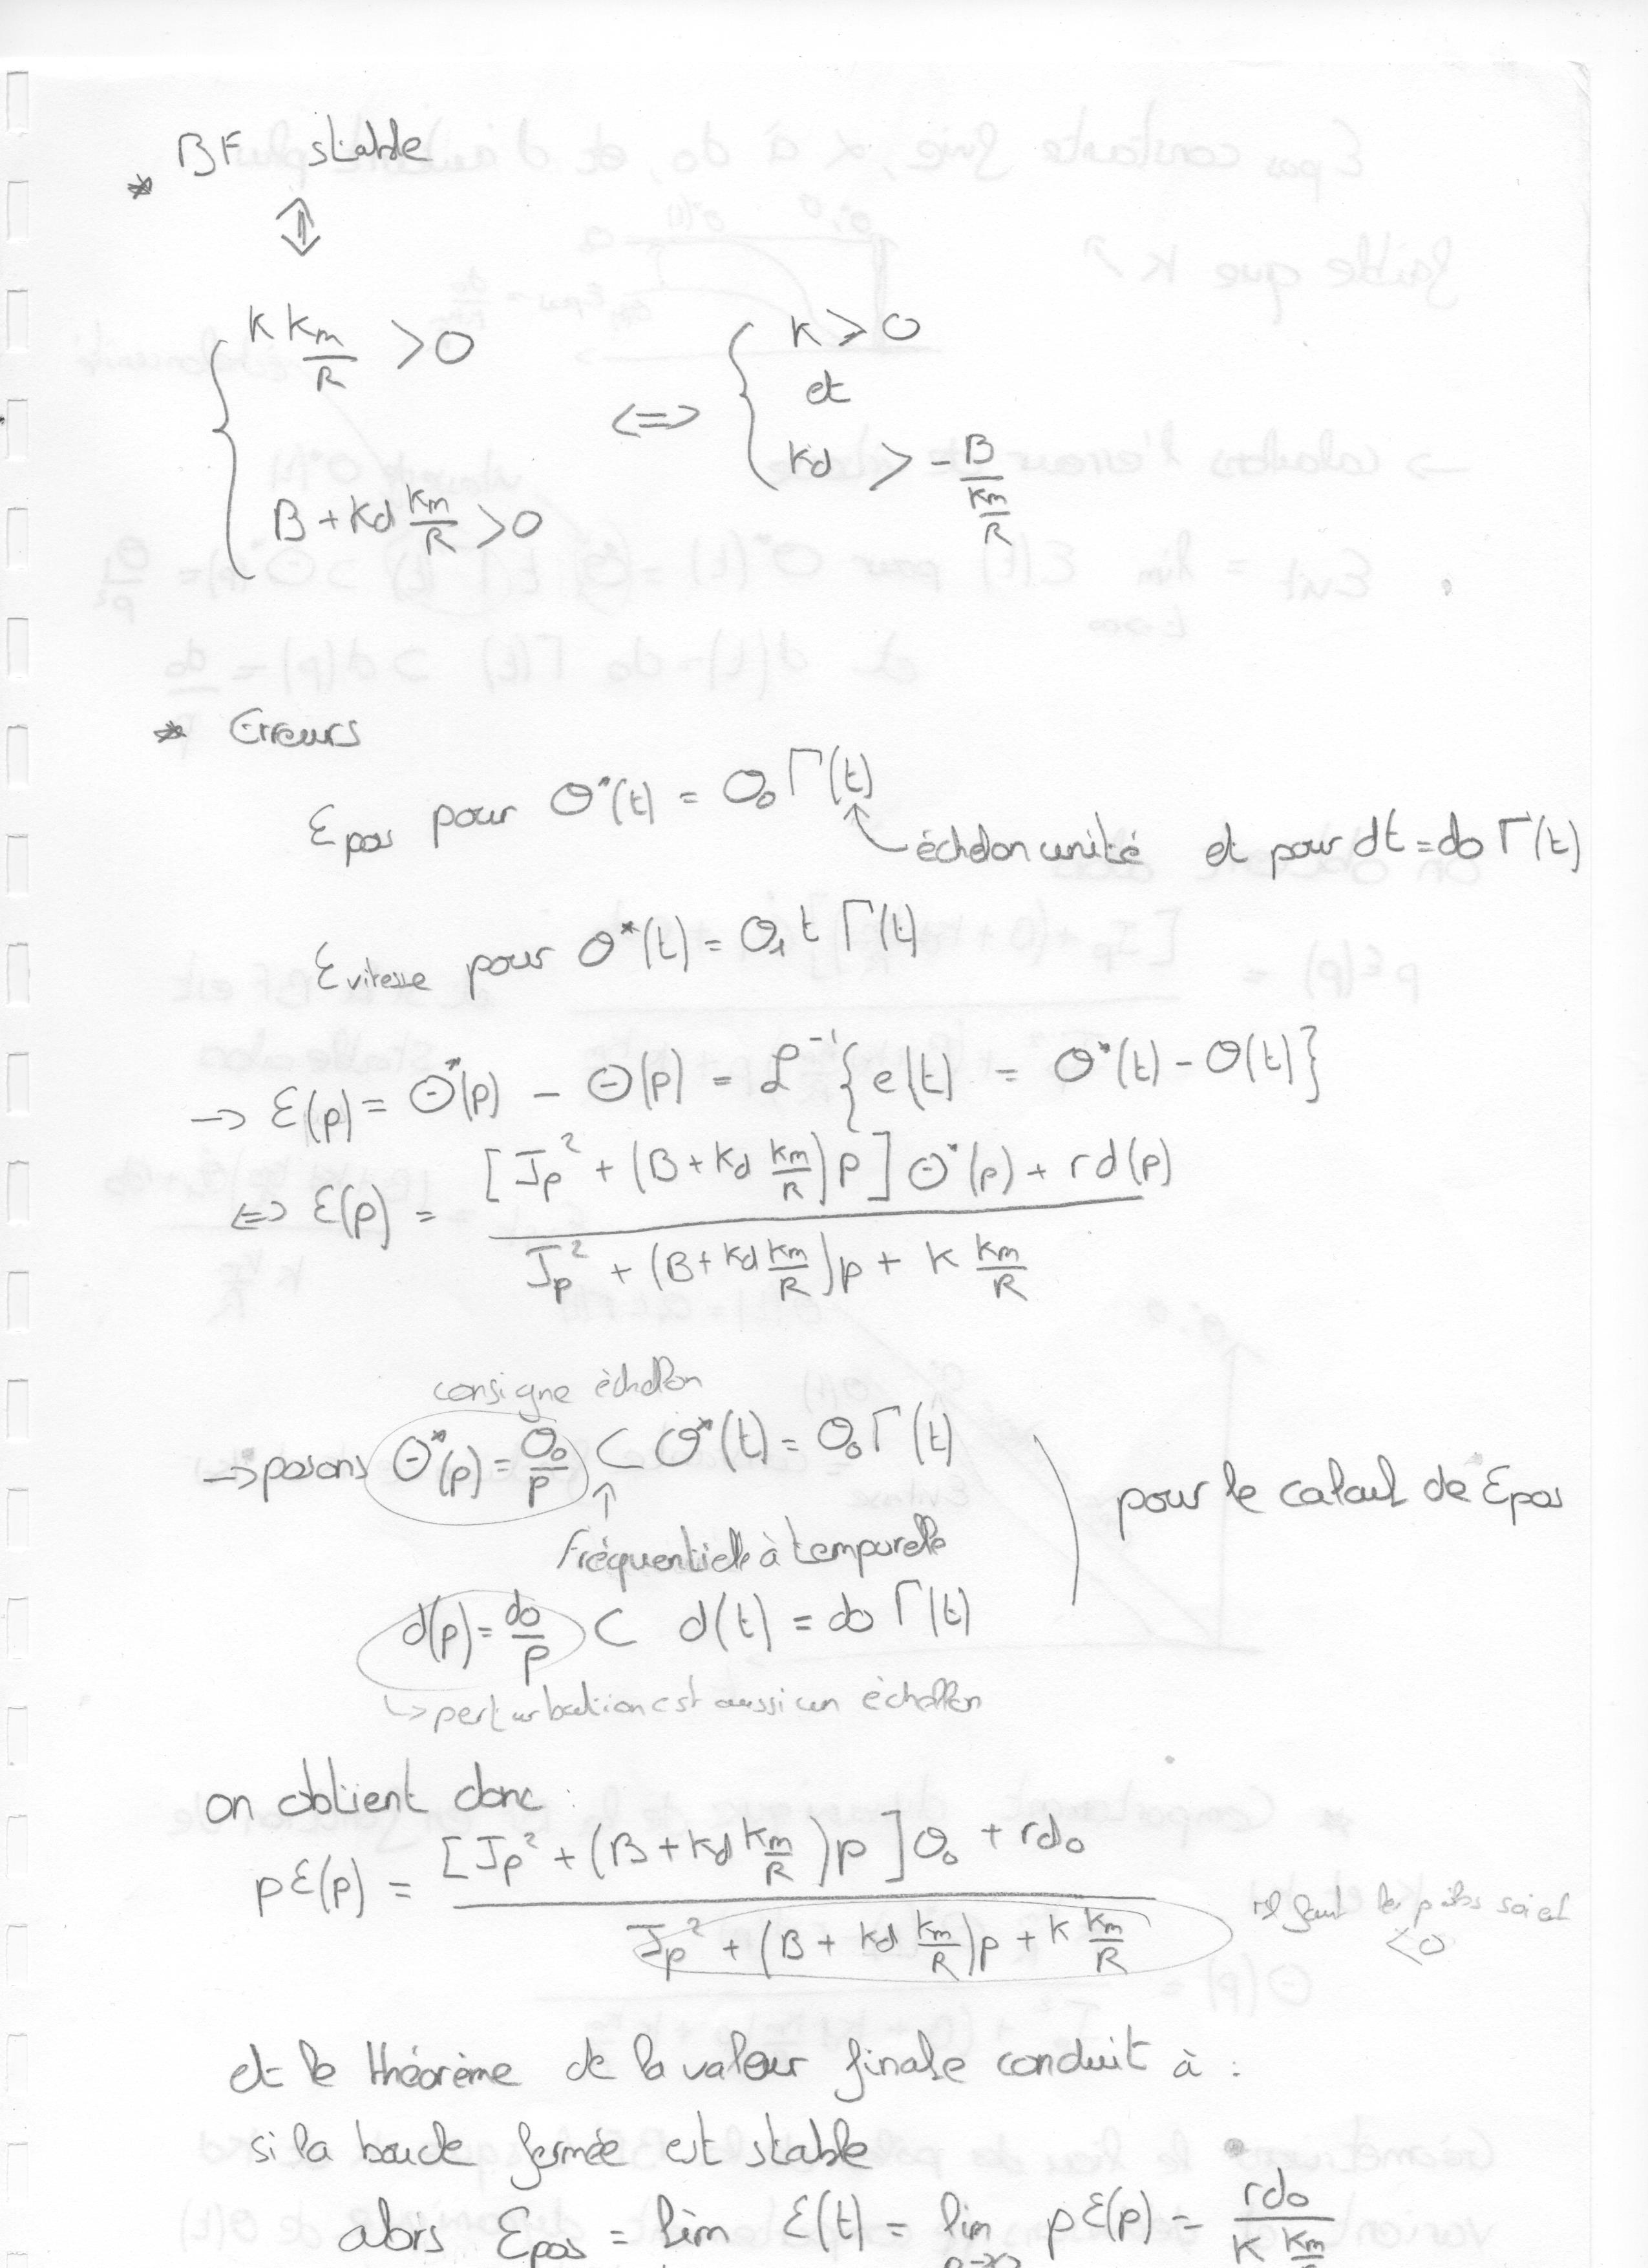 * BF stable
⇕
{ K Km/R > 0 <=> { K > 0
et
B + Kd Km/R > 0 Kd > - B / (Km/R)
* Erreurs
Epos pour θ*(t) = θ0 Γ(t)
échelon unité et pour dt = d0 Γ(t)
Evitesse pour θ*(t) = θ1 t Γ(t)
-> Ɛ(p) = Θ*(p) - Θ(p) = L^-1 { e(t) = θ*(t) - θ(t) }
<=> Ɛ(p) = ([Jp² + (B + Kd Km/R) p] Θ*(p) + r d(p)) / (Jp² + (B + Kd Km/R) p + K Km/R)
consigne échellon
-> posons Θ*(p) = θ0/p ⊂ θ*(t) = θ0 Γ(t)
↑
fréquentielle à temporelle
pour le calcul de Epos
d(p) = d0/p ⊂ d(t) = d0 Γ(t)
↳ perturbation est aussi un échellon
on obtient donc :
p Ɛ(p) = ([Jp² + (B + Kd Km/R) p] θ0 + r d0) / (Jp² + (B + Kd Km/R) p + K Km/R)
il faut les pôles soient < 0
et le théorème de la valeur finale conduit à :
si la boucle fermée est stable
alors Epos = lim Ɛ(t) = lim p Ɛ(p) = r d0 / (K Km/R)
p->0